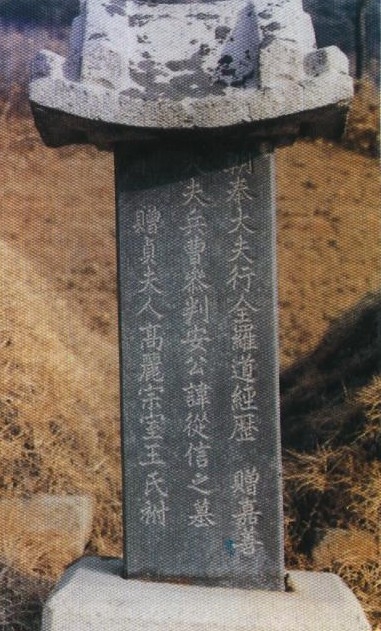 朝奉大夫行全羅道經歴 贈嘉善
大夫兵曹叅判安公諱從信之墓
贈貞夫人高麗宗室王氏祔